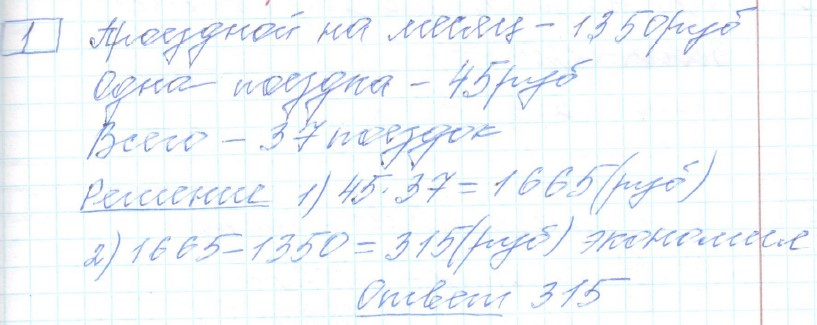 1 Проездной на месяц - 1350руб
Одна поездка - 45руб
Всего - 37 поездок
Решение 1) 45·37=1665(руб)
2) 1665-1350=315(руб) экономил
Ответ 315